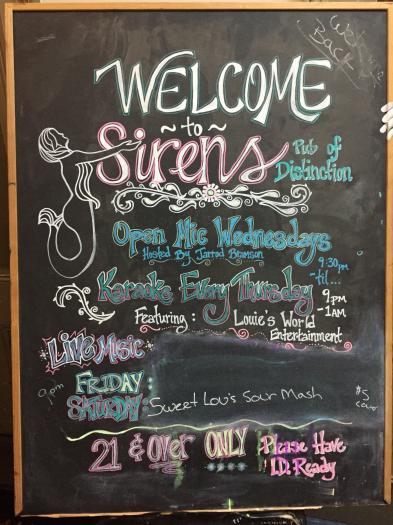 Welcome
Back
WELCOME
~to~
Sirens
Pub of
Distinction
Open Mic Wednesdays
Hosted By Jarrod Bramson
9:30pm
-til...
Karaoke Every Thursday
9pm
-1AM
Featuring: Louie's World
Entertainment
Live Music
9pm
FRIDAY:
SATURDAY: Sweet Lou's Sour Mash
$5
cover
21 & Over ONLY
Please Have
I.D. Ready